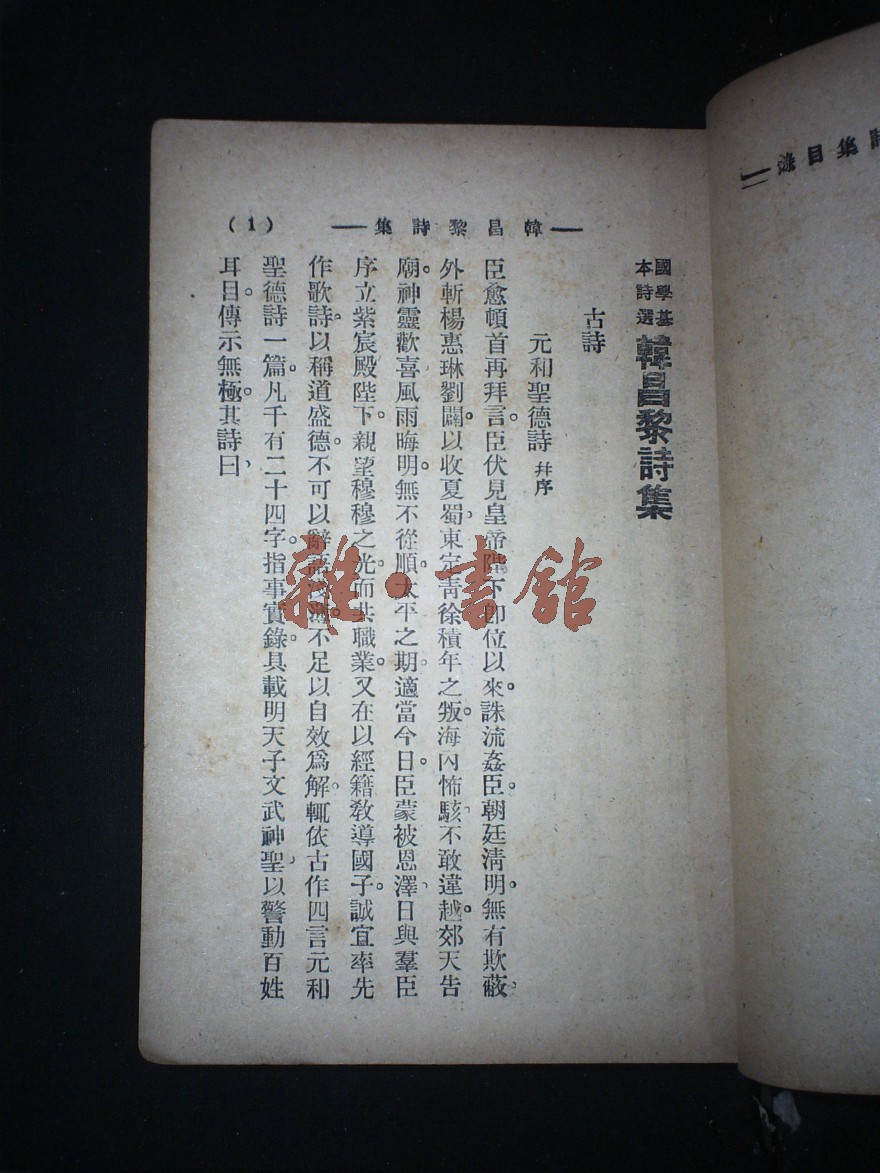 詩集目錄
—韓昌黎詩集— (1)
國學基本詩選
韓昌黎詩集
古詩
元和聖德詩 幷序
臣愈頓首再拜言。臣伏見皇帝陛下卽位以來。誅流姦臣。朝廷淸明。無有欺蔽。
外斬楊惠琳劉闢以收夏蜀。東定靑徐積年之叛。海內怖駭。不敢違越。郊天告
廟。神靈歡喜。風雨晦明。無不從順。太平之期。適當今日。臣蒙被恩澤。日與羣臣
序立紫宸殿陛下。親望穆穆之光。而其職業。又在以經籍敎導國子。誠宜率先
作歌詩。以稱道盛德。不可以辭語淺薄。不足以自效爲解。輒依古作四言元和
聖德詩一篇。凡千有二十四字。指事實錄。具載明天子文武神聖。以警動百姓
耳目。傳示無極。其詩曰、
雜·書館